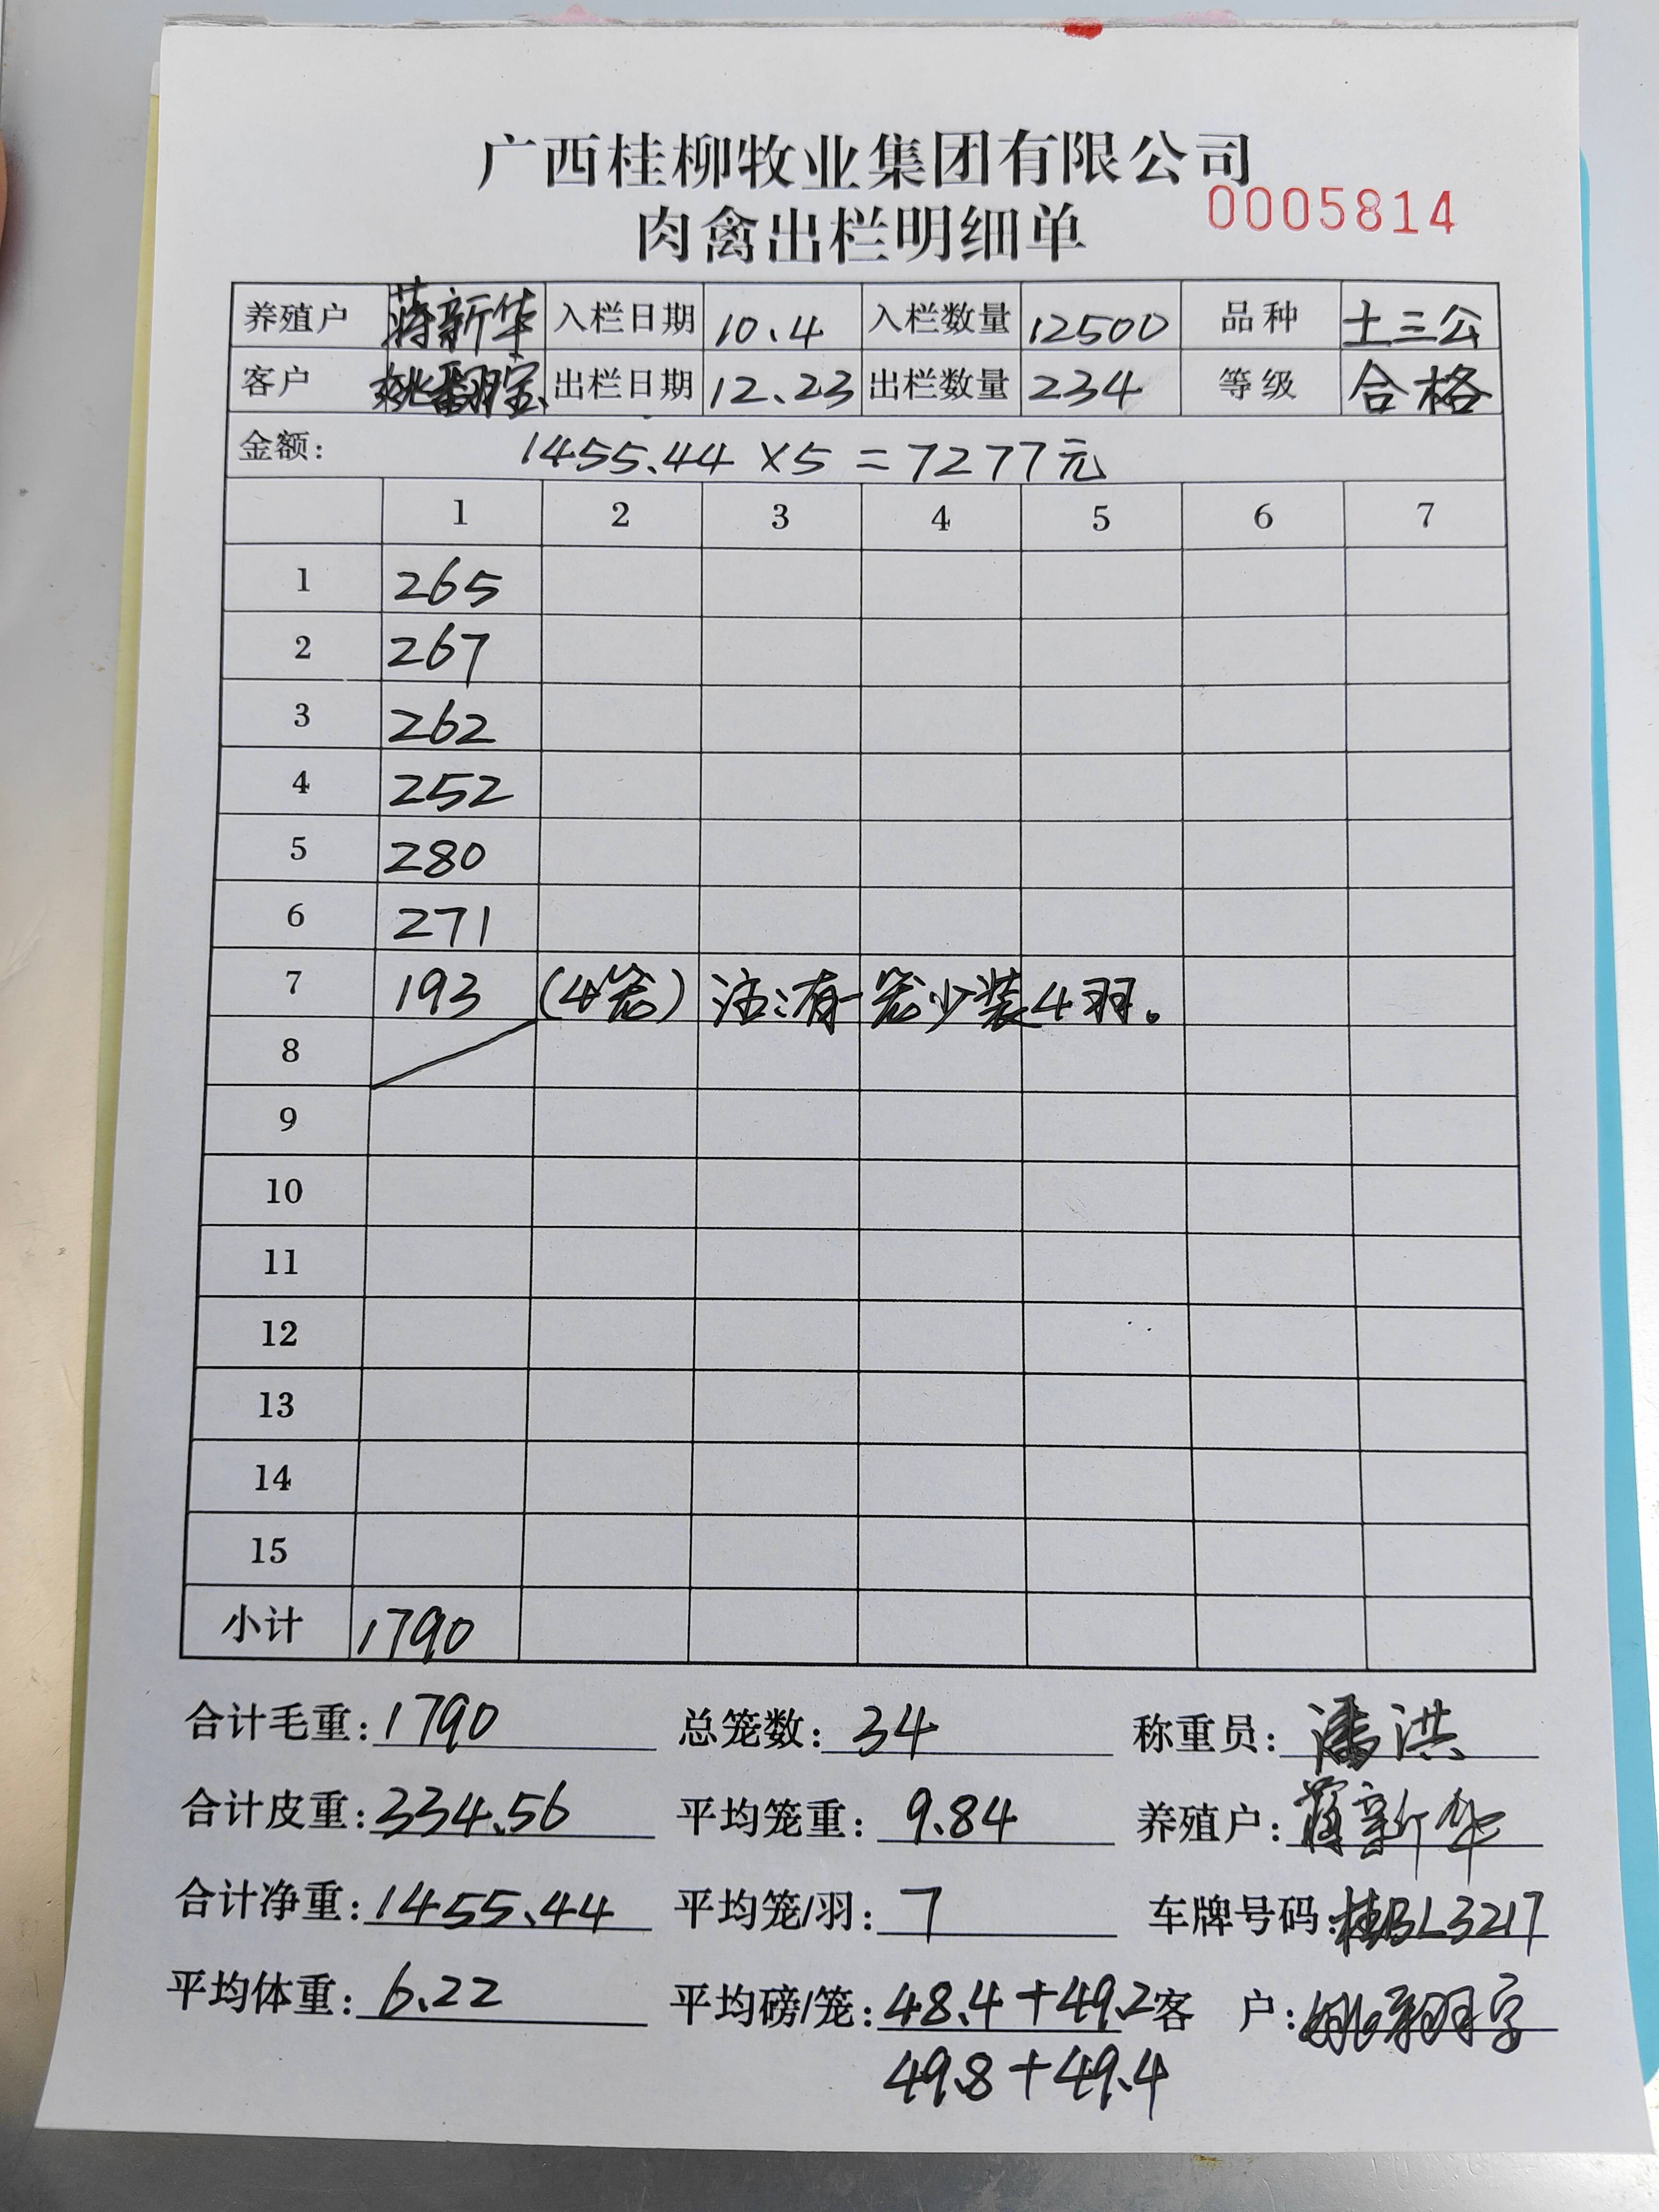 广西桂柳牧业集团有限公司
肉禽出栏明细单
0005814
养殖户 蒋新华 入栏日期 10.4 入栏数量 12500 品种 土三公
客户 出栏日期 12.23 出栏数量 234 等级 合格
金额: 1455.44 ×5 = 7277元
1 2 3 4 5 6 7
1 265
2 267
3 262
4 252
5 280
6 271
7 193 (4笼) 注:有一笼少装4羽。
8
9
10
11
12
13
14
15
小计 1790
合计毛重: 1790 总笼数: 34 称重员: 潘洪
合计皮重: 334.56 平均笼重: 9.84 养殖户: 蒋新华
合计净重: 1455.44 平均笼/羽: 7 车牌号码: 桂BL3217
平均体重: 6.22 平均磅/笼: 48.4+49.2 客 户:
49.8+49.4